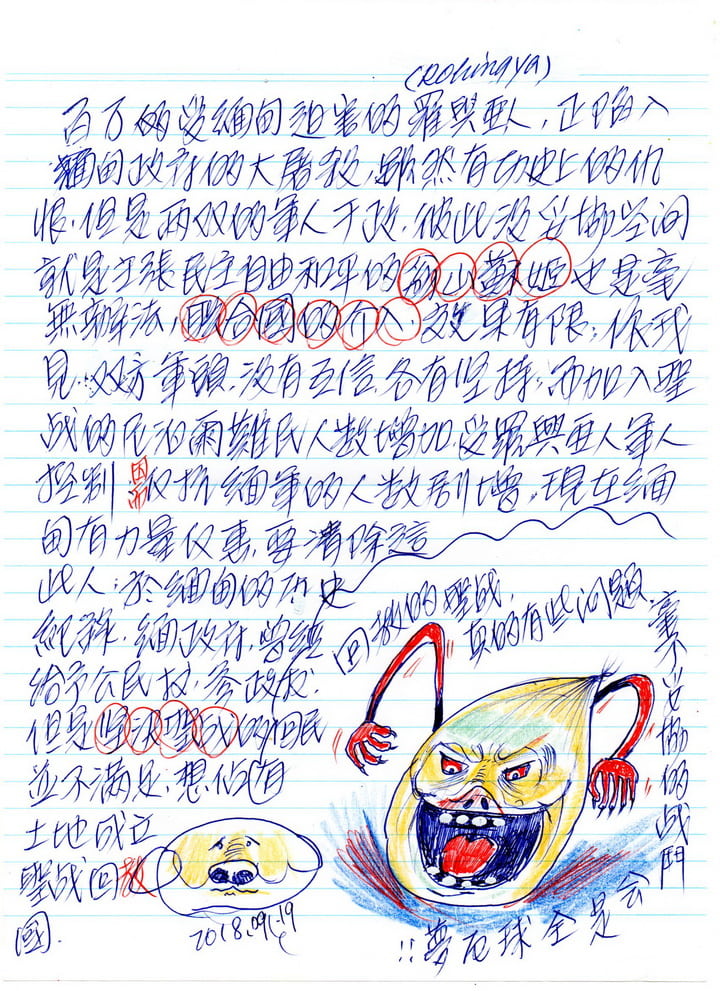 (Rohingya)
百万的受緬甸迫害的羅興亜人,正陷入
緬甸政府的大屠殺,雖然有历史上的仇
恨.但是两双的軍人干政.彼此没妥协空间
就是主張民主自由和平的翁山蘇姬也是毫
無辦法,聯合國的介入.效果有限;依我
見.双方軍頭.没有互信.各有坚持;而加入聖
战的尼泊爾難民人数增加.受羅興亜人軍人
控制因而反抗緬軍的人数剧增.現在緬
甸有力量仅
要清除這
些人;於緬甸的历史
緬政府.曾經
給予公民权.参政权.
但是聖战的回民
並不满足.想佔有
土地成立
聖战回教
國.
回教的聖战.
真的有些问题.
毫不妥协的战鬥
2018.09.19
!!夢灰球全是会